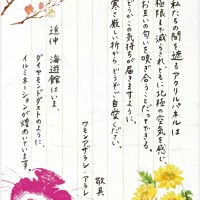 私たちの間を遮るアクリルパネルは
極限まで減らされ、ともに北極の空気を感じ
お互いの匂いを嗅ぎ合うことだってできる。
どうかこの気持ちが届きますように。
寒さ厳しい折から、どうぞご自愛ください。
敬具
ワモンアザラシ・アラレ
追伸 海遊館はいま、
ダイヤモンドダストのように
イルミネーションが煌めいています。